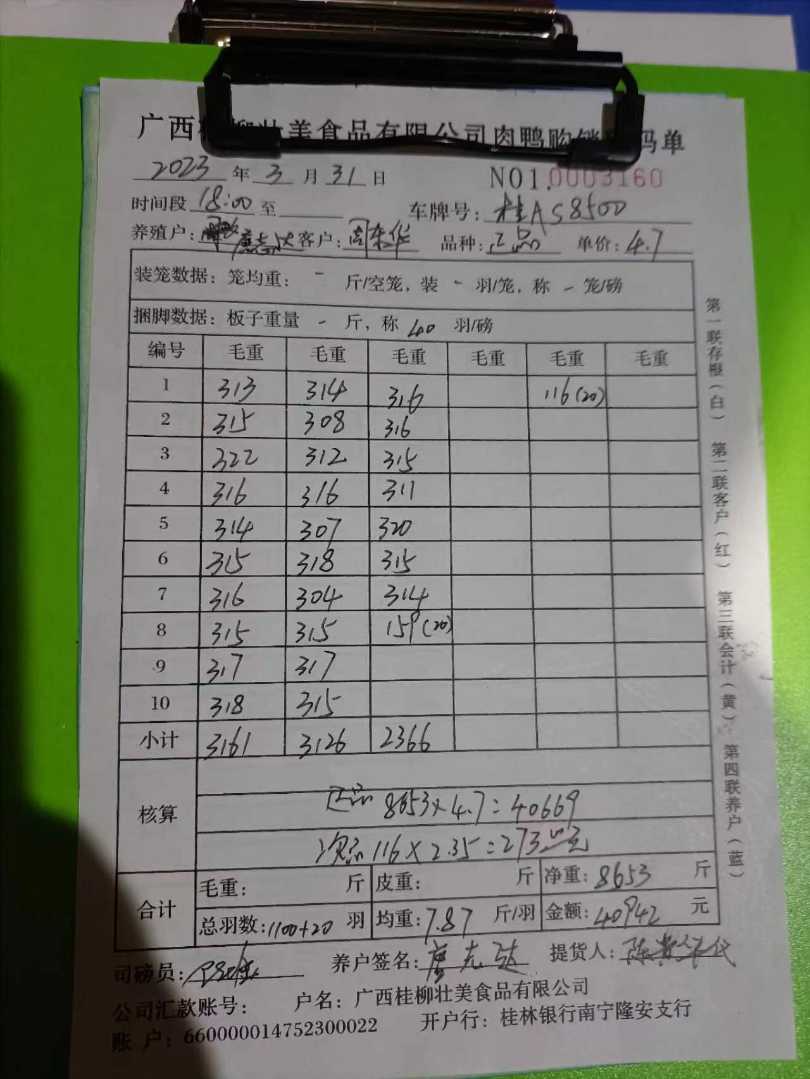 广西桂柳壮美食品有限公司肉鸭购销 码单
2023 年 3 月 31 日 NO1.0003160
时间段 18:00 至 车牌号: 桂AS8500
养殖户: 客户: 周荣华 品种: 正品 单价: 4.7
装笼数据: 笼均重: - 斤/空笼, 装 - 羽/笼, 称 - 笼/磅
捆脚数据: 板子重量 - 斤, 称 40 羽/磅
编号 毛重 毛重 毛重 毛重 毛重 毛重
1 313 314 316 116(20)
2 315 308 316
3 322 312 315
4 316 316 311
5 314 307 320
6 315 318 315
7 316 304 314
8 315 315 159(20)
9 317 317
10 318 315
小计 3161 3126 2366
核算
正品 8653×4.7=40669
次品 116×2.35=273元
合计
毛重: 斤 皮重: 斤 净重: 8653 斤
总羽数: 1100+20 羽 均重: 7.87 斤/羽 金额: 40942 元
司磅员: 养户签名: 提货人:
公司汇款账号: 户名: 广西桂柳壮美食品有限公司
账 户: 660000014752300022 开户行: 桂林银行南宁隆安支行
第一联存根(白) 第二联客户(红) 第三联会计(黄) 第四联养户(蓝)